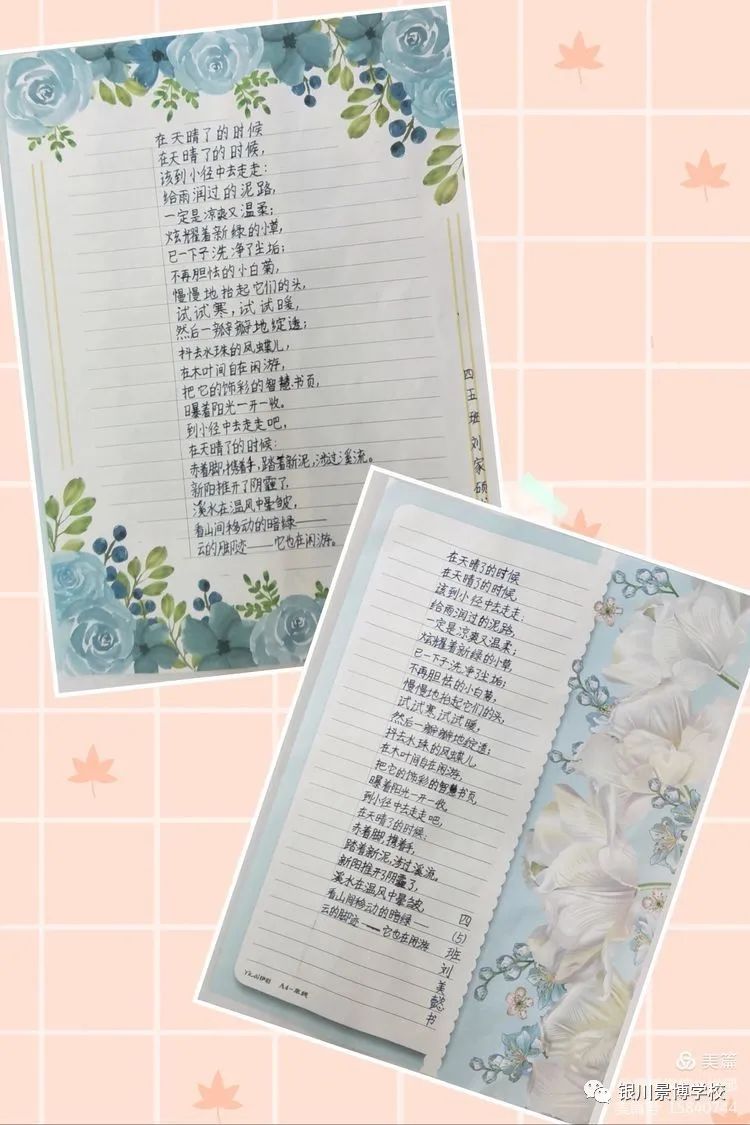 在天晴了的时候
在天晴了的时候,
该到小径中去走走:
给雨润过的泥路,
一定是凉爽又温柔;
炫耀着新绿的小草,
已一下子洗净了尘垢;
不再胆怯的小白菊,
慢慢地抬起它们的头,
试试寒,试试暖,
然后一瓣瓣地绽透;
抖去水珠的凤蝶儿,
在木叶间自在闲游,
把它的饰彩的智慧书页,
曝着阳光一开一收。
到小径中去走走吧,
在天晴了的时候:
赤着脚,携着手,踏着新泥,涉过溪流。
新阳推开了阴霾了,
溪水在温风中晕皱,
看山间移动的暗绿——
云的脚迹——它也在闲游。
四五班刘家硕
在天晴了的时候
在天晴了的时候,
该到小径中去走走:
给雨润过的泥路,
一定是凉爽又温柔;
炫耀着新绿的小草,
已一下子洗净了尘垢;
不再胆怯的小白菊,
慢慢地抬起它们的头,
试试寒,试试暖,
然后一瓣瓣地绽透;
抖去水珠的凤蝶儿,
在木叶间自在闲游,
把它的饰彩的智慧书页,
曝着阳光一开一收。
到小径中去走走吧,
在天晴了的时候:
赤着脚,携着手,
踏着新泥,涉过溪流。
新阳推开了阴霾了,
溪水在温风中晕皱,
看山间移动的暗绿——
云的脚迹——它也在闲游
四(5)班刘美懿书
美篇
银川景博学校